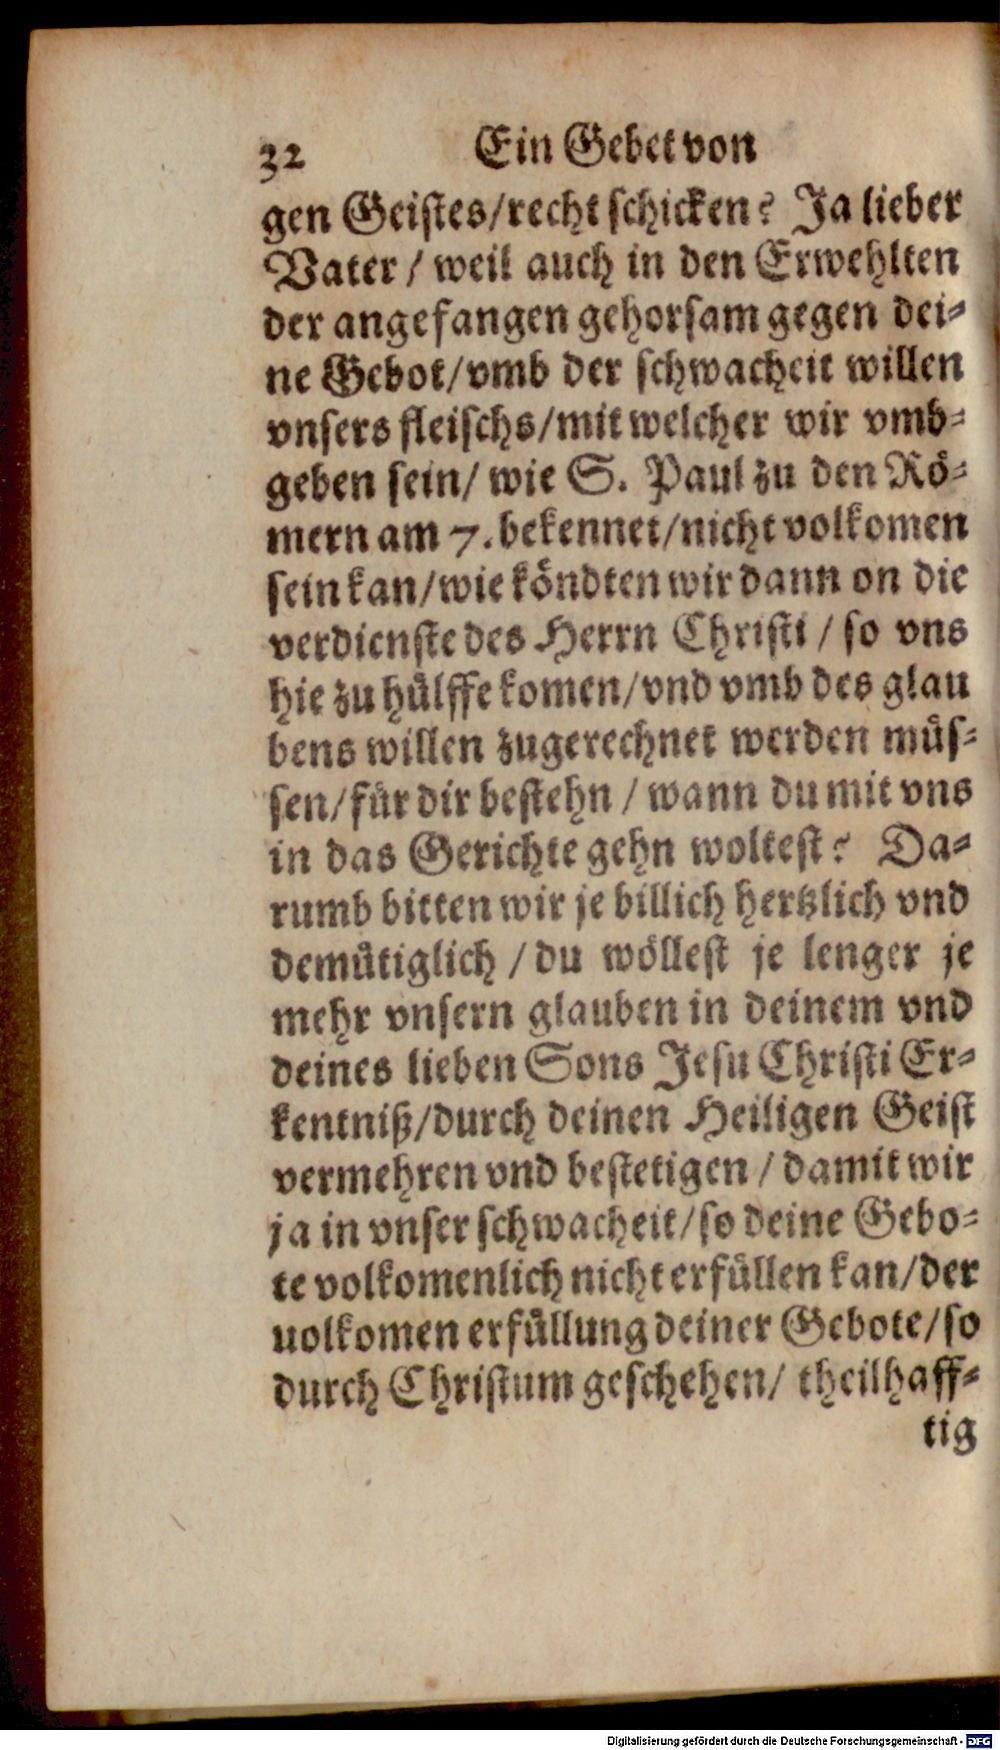 32 Ein Gebet von
gen Geistes/recht schicken? Ja lieber
Vater / weil auch in den Erwehlten
der angefangen gehorsam gegen dei-
ne Gebot/vmb der schwacheit willen
vnsers fleischs/mit welcher wir vmb-
geben sein/ wie S. Paul zu den Rö-
mern am 7. bekennet/nicht volkomen
sein kan/wie köndten wir dann on die
verdienste des Herrn Christi / so vns
hie zu hülffe komen/vnd vmb des glau
bens willen zugerechnet werden müs-
sen/für dir bestehn / wann du mit vns
in das Gerichte gehn woltest? Da-
rumb bitten wir je billich hertzlich vnd
demütiglich / du wöllest je lenger je
mehr vnsern glauben in deinem vnd
deines lieben Sons Jesu Christi Er-
kentniß/durch deinen Heiligen Geist
vermehren vnd bestetigen / damit wir
ja in vnser schwacheit/so deine Gebo-
te volkomenlich nicht erfüllen kan/der
uolkomen erfüllung deiner Gebote/so
durch Christum geschehen/ theilhaff-
tig
Digitalisierung gefördert durch die Deutsche Forschungsgemeinschaft - DFG